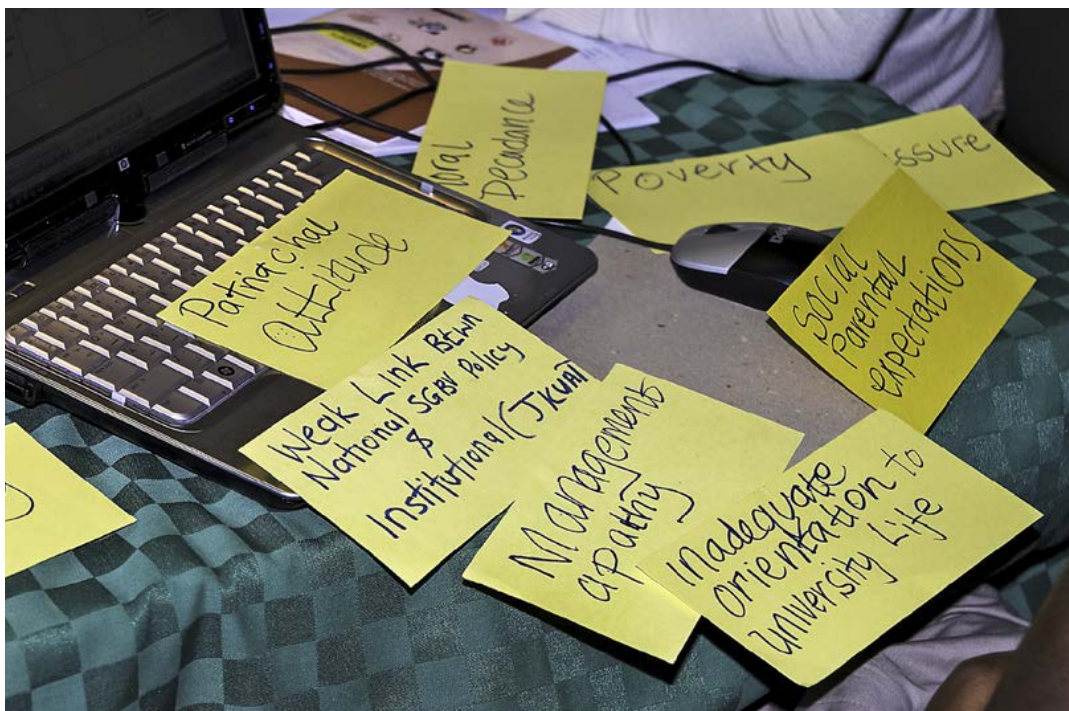 oral
Decadance
Poverty
ssure
Patriachal
attitude
Social
Parental
expectations
Weak Link BEWN
National SGBV Policy
&
Institutional (JKUAT
Managements
apathy
Inadequate
orientation to
University Life
DELL
hp